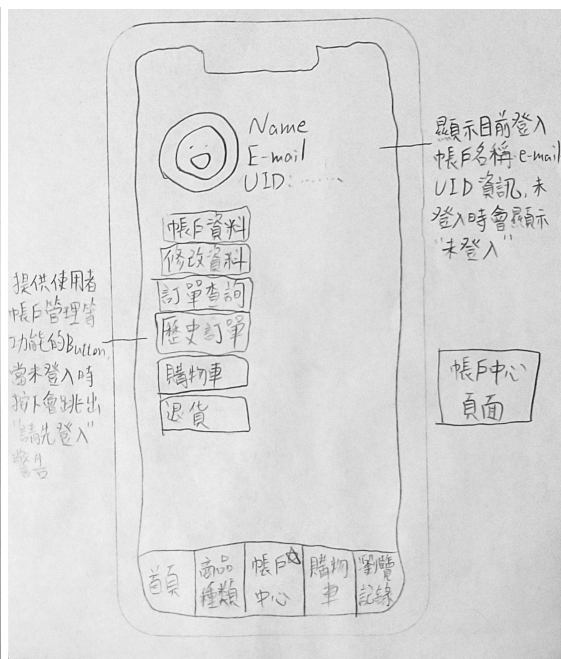 Name
E-mail
UID:........
顯示目前登入
帳戶名稱 e-mail
UID 資訊,未
登入時會顯示
"未登入"
帳戶資料
修改資料
訂單查詢
歷史訂單
購物車
退貨
提供使用者
帳戶管理等
功能的Button,
當未登入時
按下會跳出
"請先登入"
警告
帳戶中心
頁面
首頁
商品
種類
帳戶
中心
購物
車
瀏覽
記錄